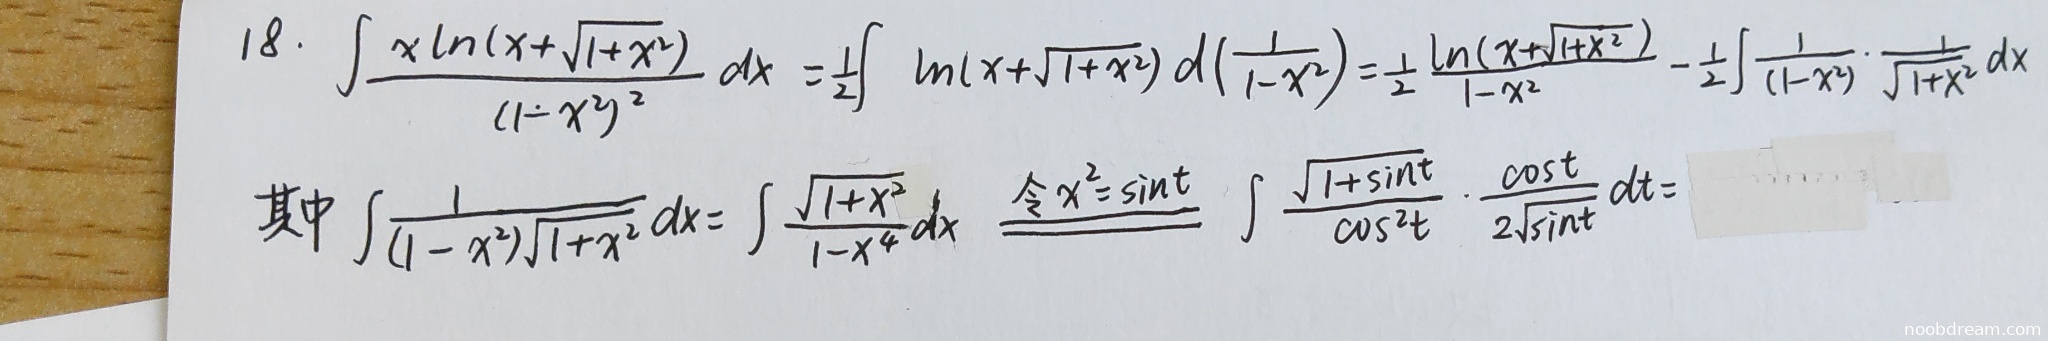 18. ∫ x ln(x+√(1+x²)) / (1-x²)² dx = 1/2 ∫ ln(x+√(1+x²)) d(1/(1-x²)) = 1/2 ln(x+√(1+x²)) / (1-x²) - 1/2 ∫ 1/(1-x²) · 1/√(1+x²) dx
其中 ∫ 1/((1-x²)√(1+x²)) dx = ∫ √(1+x²) / (1-x⁴) dx 令x²=sint ∫ √(1+sint) / cos²t · cost / (2√sint) dt =
noobdream.com